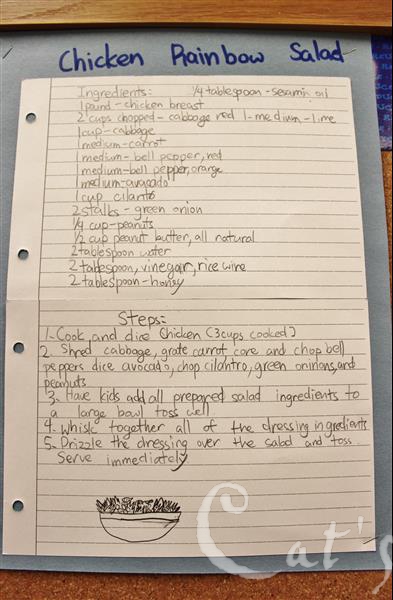 Chicken Rainbow Salad
Ingredients: 1/4 tablespoon - sesamin oil
1 pound - chicken breast
2 cups chopped - cabbage red 1 - medium - lime
1 cup - cabbage
1 medium - carrot
1 medium - bell pepper, red
medium - bell pepper, orange
medium - avocado
1 cup cilanto
2 stalks - green onion
1/4 cup - peanuts
1/2 cup peanut butter, all natural
2 tablespoon water
2 tablespoon, vinegar, rice wine
2 tablespoon - honey
Steps:
1. Cook and dice chicken (3 cups cooked)
2. Shred cabbage, grate carrot core and chop bell
peppers dice avocado, chop cilantro, green oninions, and
peanuts
3. Have kids add all prepared salad ingredients to
a large bowl toss well.
4. Whisk together all of the dressing ingredients
5. Drizzle the dressing over the salad and toss.
Serve immediately
Cat's